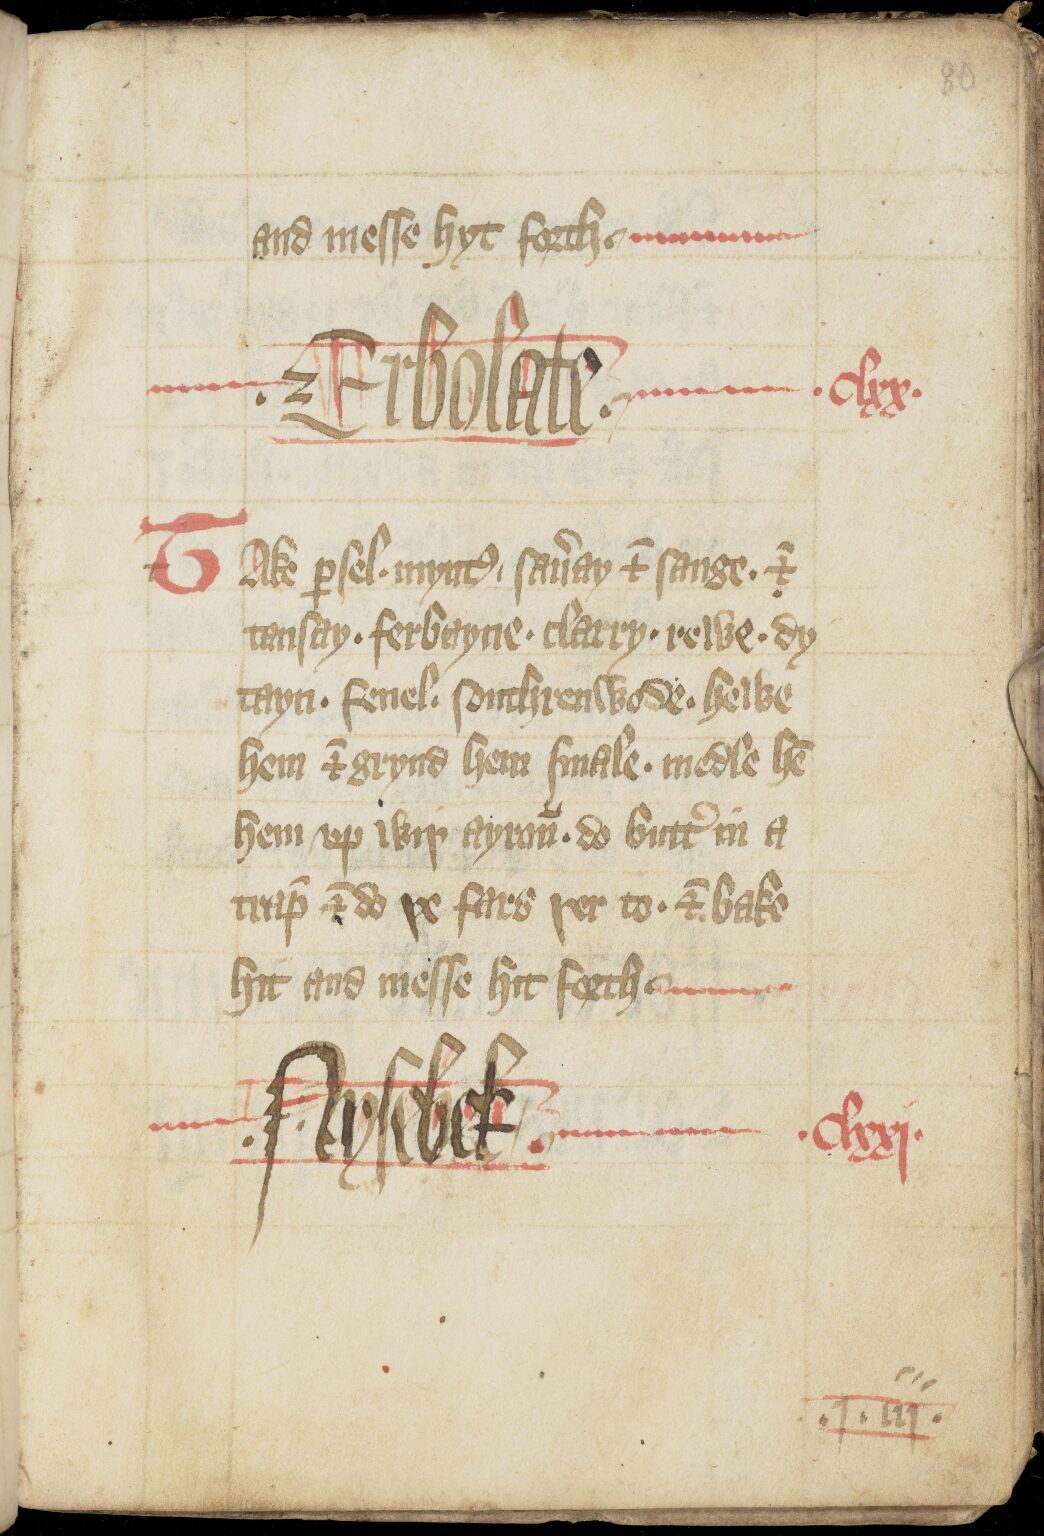 80
and messe hyt forth
Erbolate · clxx ·
TAke ꝑsel · mynt, sau̾ay ⁊ sauge · ⁊
tansay · ferbayne · clarry · rewe · dy
tayn · fenel · southrenwode · hewe
hem ⁊ grynd hem smale · medle hē
hem vp wiþ ayroū · do butt̾ in a
trap̄ ⁊ do þe fars þer to · ⁊ bake
hit and messe hit forth
Nysebek · clxxj ·
· j · iij ·